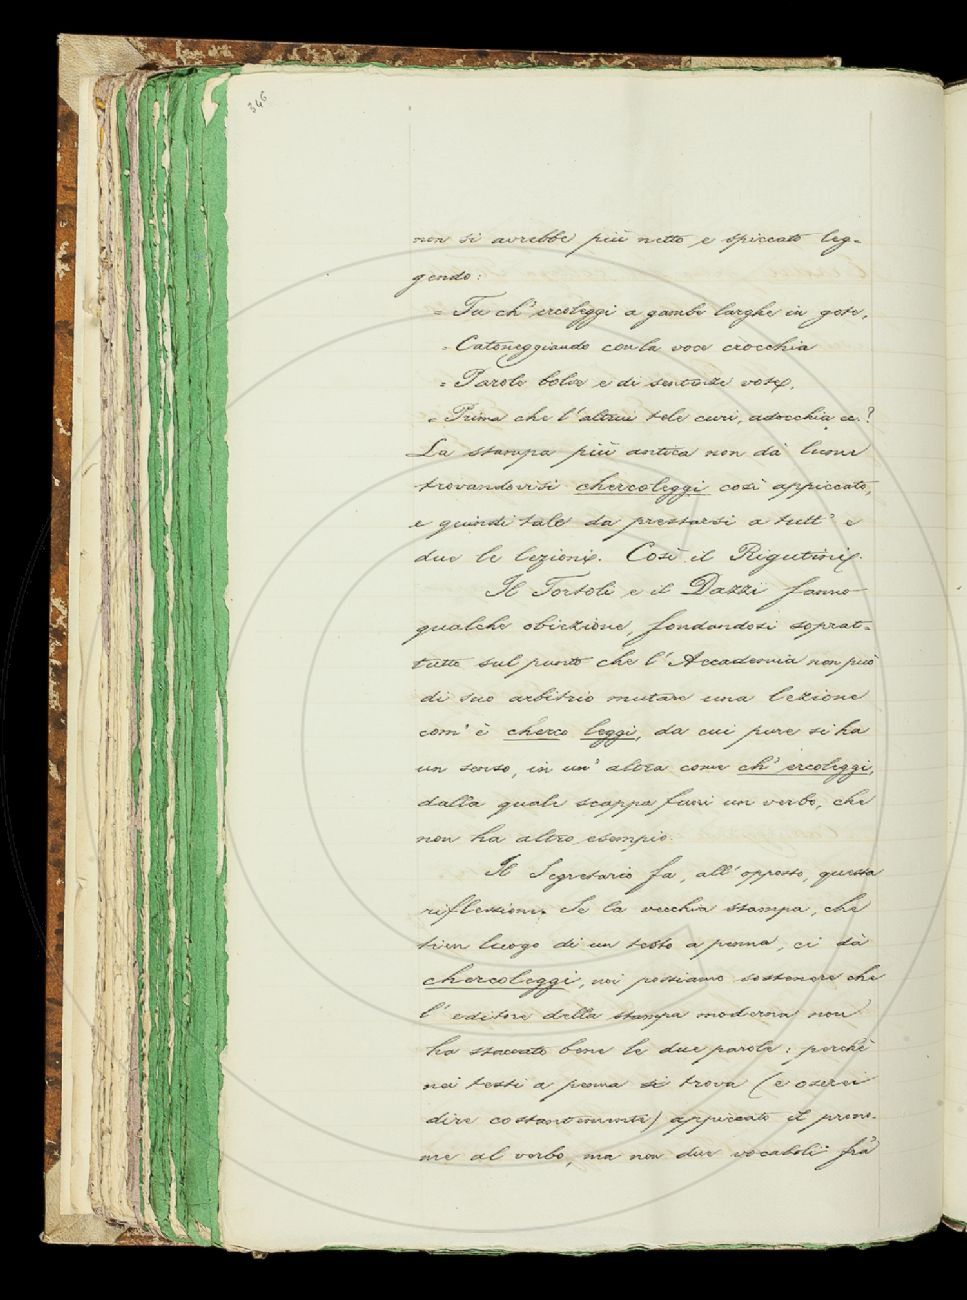 346
non si avrebbe più netto e spiccato leg-
gendo:
= Tu ch' ercoleggi a gambe larghe in gote,
= Catoneggiando con la voce crocchia
= Parole bolse e di sentenze vote,
= Prima che l'altrui tele curi, adocchia ec.?
La stampa più antica non dà lume
trovandovisi chercoleggi così appiccato,
e quindi tale da prestarsi a tutt' e
due le lezioni. Così il Rigutini.
Il Tortoli e il Dazzi fanno
qualche obiezione, fondandosi soprat-
tutto sul punto che l'Accademia non può
di suo arbitrio mutare una lezione
com' è cherco leggi, da cui pure si ha
un senso, in un' altra come ch' ercoleggi,
dalla quale scappa fuori un verbo, che
non ha altro esempio.
Il Segretario fa, all' opposto, questa
riflessione. Se la vecchia stampa, che
tien luogo di un testo a penna, ci dà
chercoleggi, noi possiamo sostenere che
l' editore della stampa moderna non
ha staccato bene le due parole: perchè
nei testi a penna si trova (e oserei
dire costantemente) appiccato il prono-
me al verbo, ma non due vocaboli fra